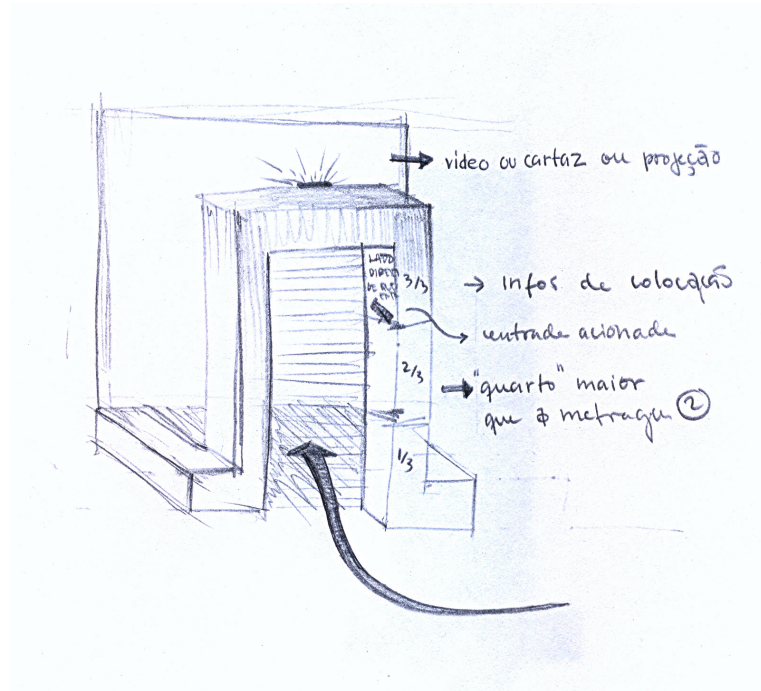 → video ou cartaz ou projeção
LADO
DIREITO
DE
3/3
→ infos de colocação
→ entrada acionada
2/3
→ "quarto" maior
que a metragem ②
1/3